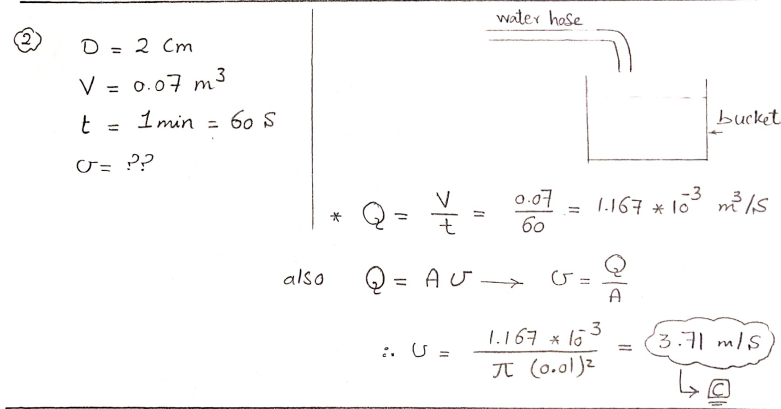 ②
D = 2 Cm
V = 0.07 m³
t = 1min = 60 S
υ = ??
water hose
bucket
* Q = V/t = 0.07/60 = 1.167 * 10⁻³ m³/S
also Q = A υ → υ = Q/A
∴ υ = 1.167 * 10⁻³ / π (0.01)² = 3.71 m/S
↳ C